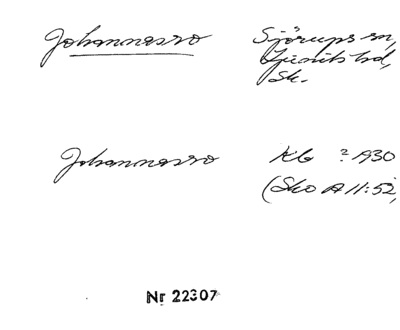 Johannesro Sjörups sn,
Ljunits hd,
Sk.
Johannesro KB ? 1930
(Sko A 11:52,
Nr 22307